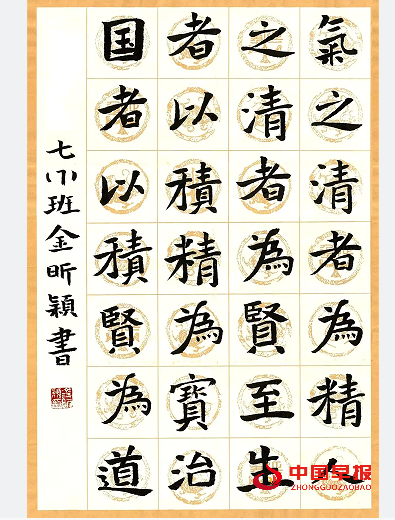 氣之清者為精人
之清者為賢至生
者以積精為寶治
国者以積賢為道
七(1)班金昕穎書
中国早报
ZHONGGUOZAOBAO